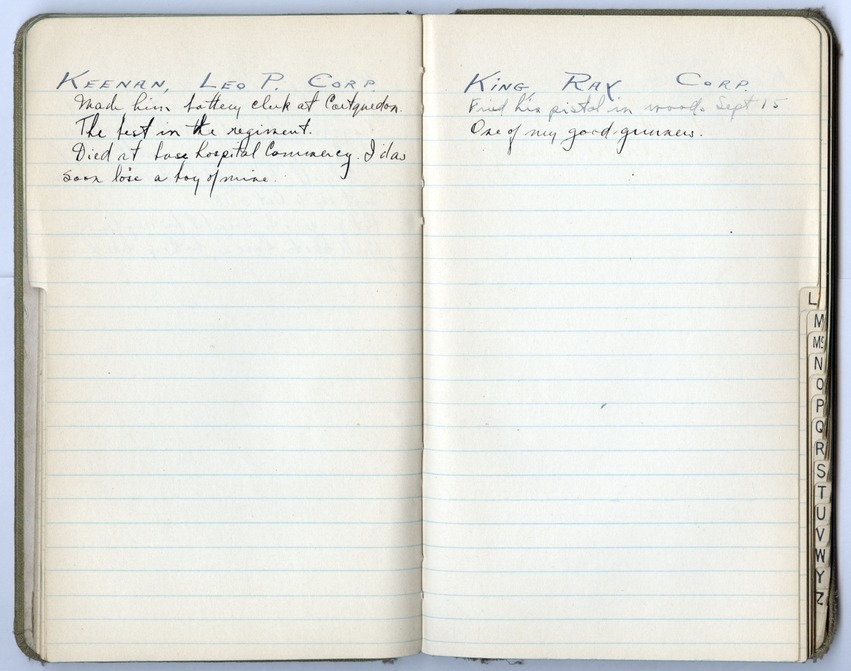 KEENAN, LEO P. CORP.
Made him battery clerk at Coetquedon.
The best in the regiment.
Died at base hospital Commercy. I'd as
soon lose a boy of mine.
KING, RAY CORP.
Fired his pistol in woods Sept 15
One of my good gunners.
L
M
Mc
N
O
P
Q
R
S
T
U
V
W
Y
Z